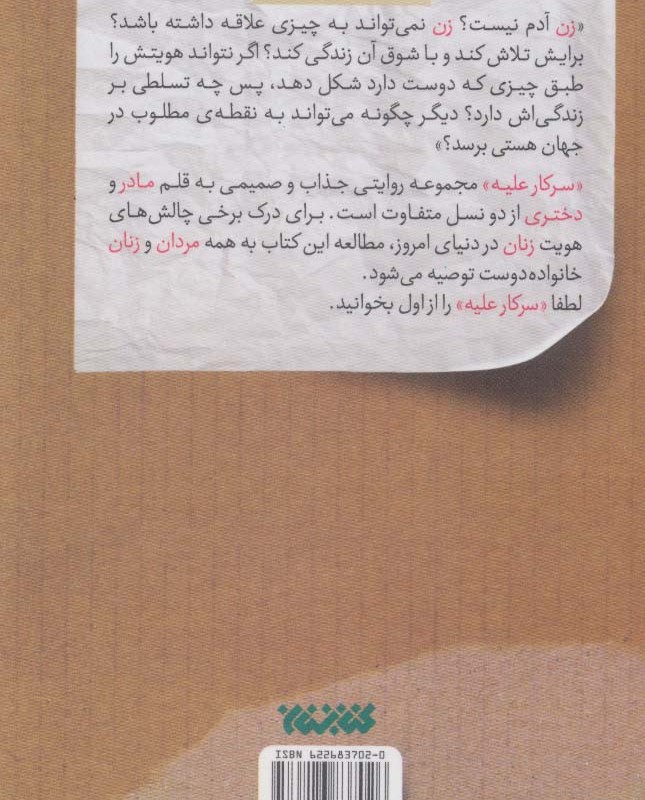 «زن آدم نیست؟ زن نمی‌تواند به چیزی علاقه داشته باشد؟
برایش تلاش کند و با شوق آن زندگی کند؟ اگر نتواند هویتش را
طبق چیزی که دوست دارد شکل دهد، پس چه تسلطی بر
زندگی‌اش دارد؟ دیگر چگونه می‌تواند به نقطه‌ی مطلوب در
جهان هستی برسد؟»
«سرکار علیه» مجموعه روایتی جذاب و صمیمی به قلم مادر و
دختری از دو نسل متفاوت است. برای درک برخی چالش‌های
هویت زنان در دنیای امروز، مطالعه این کتاب به همه مردان و زنان
خانواده‌دوست توصیه می‌شود.
لطفا «سرکار علیه» را از اول بخوانید.
ISBN 622683702-0